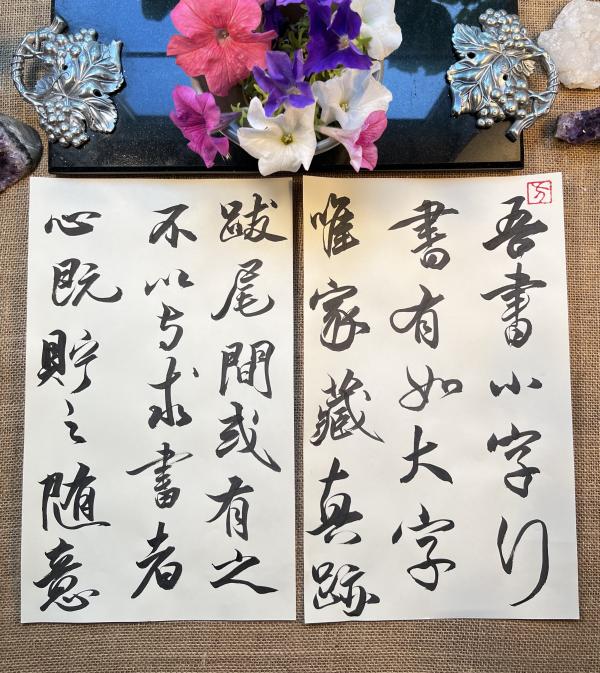 吾書小字行
書有如大字
唯家藏真跡
跋尾間或有之
不以与求書者
心既貯之随意